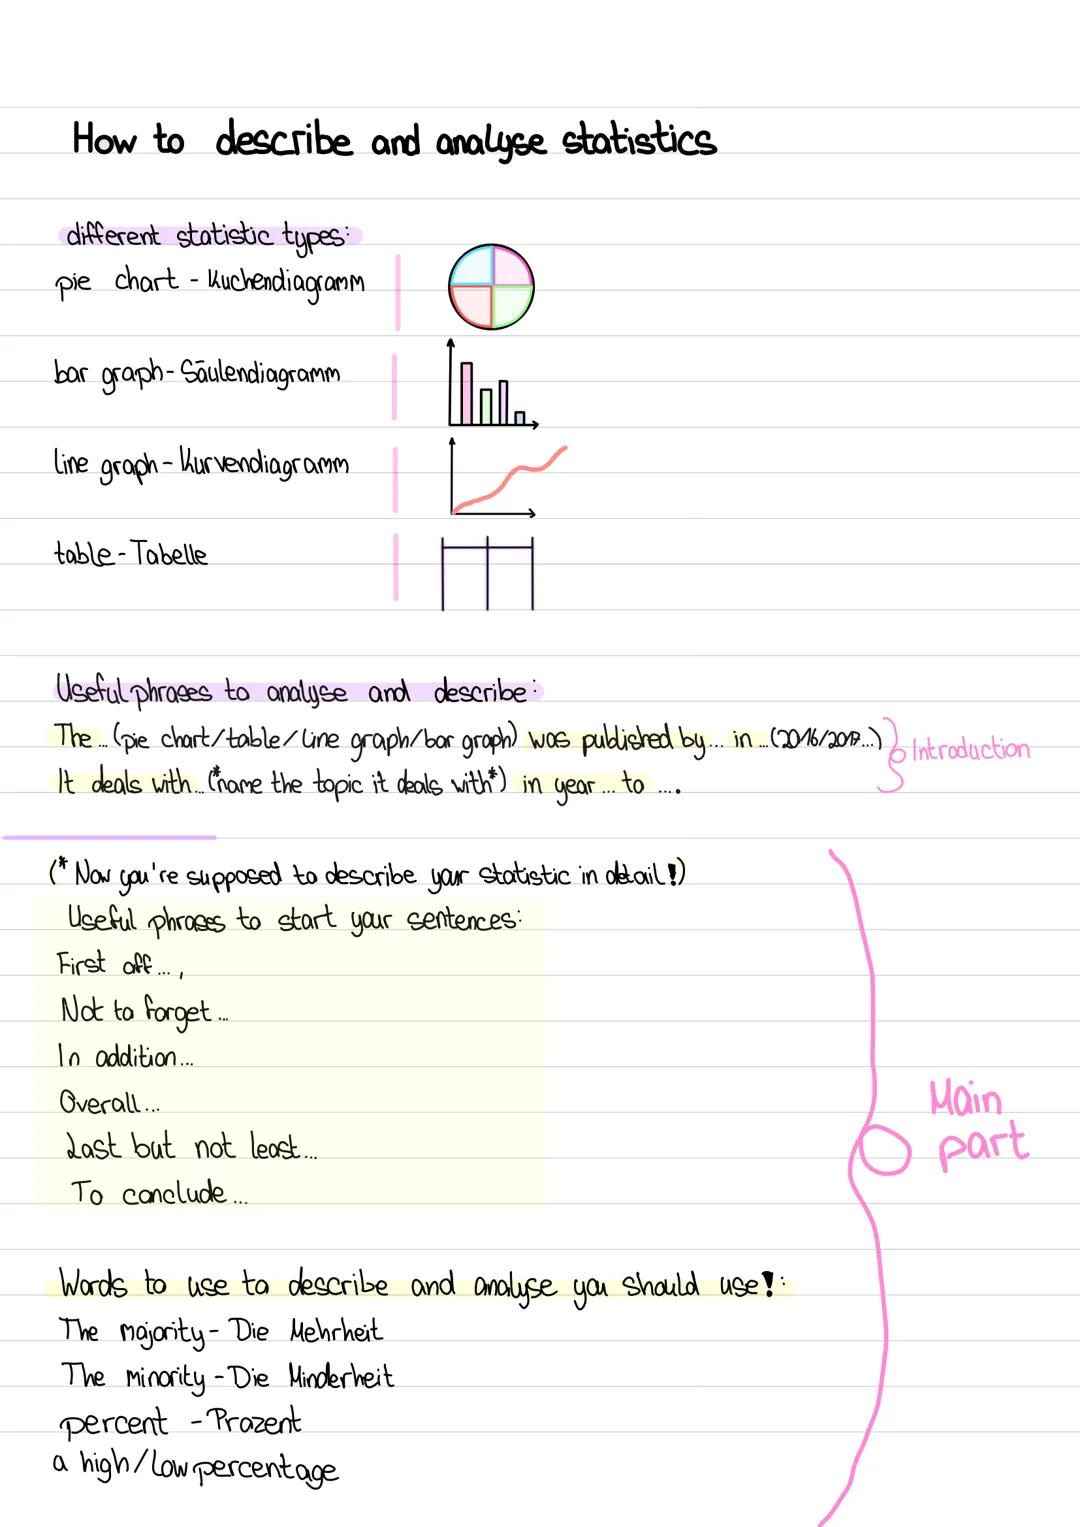 How to describe and analyse statistics
different statistic types:
pie chart - Kuchendiagramm
bar graph - Säulendiagramm
line graph - Kurvendiagramm
table - Tabelle
Useful phrases to analyse and describe:
The ... (pie chart/table/line graph/bar graph) was published by ... in ... (2016/2017...)
Introduction
It deals with... (*name the topic it deals with*) in year ... to ....
(* Now you're supposed to describe your statistic in detail!)
Useful phrases to start your sentences:
First off ... ,
Not to forget ...
In addition ...
Overall ...
Last but not least ...
To conclude ...
Main
part
Words to use to describe and analyse you should use!:
The majority - Die Mehrheit
The minority - Die Minderheit
percent - Prozent
a high/low percentage